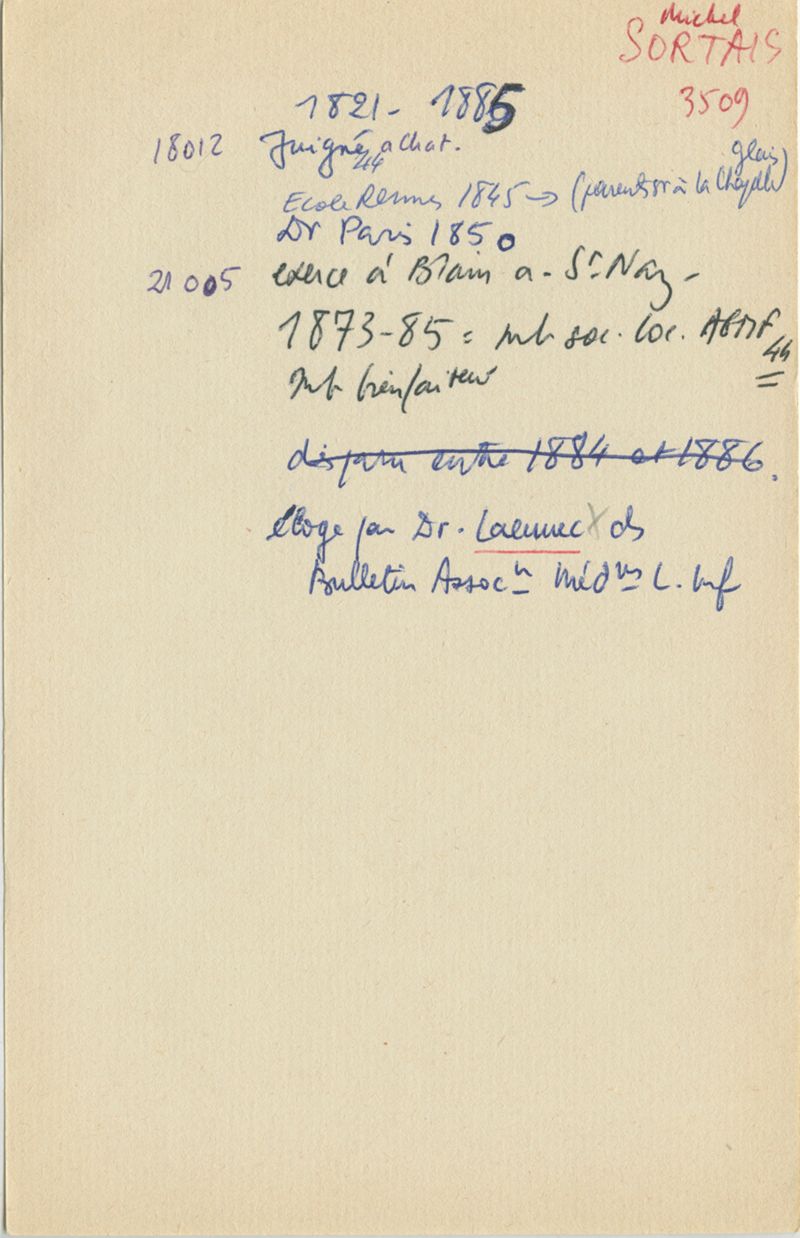 Michel
SORTAIS
3509
1821 - 1885
18012 Juigné 44 a Chat.
Ecole Rennes 1845 → (parents sr à la Chapelle glain)
Dr Paris 1850
21005 exerce à Blain a - St Naz -
1873-85 = mb soc. loc. AGMF 44
mb bienfaiteur
disparu entre 1884 et 1886.
éloge par Dr. Laennec X ds
Bulletin Assocn Médns L. Inf